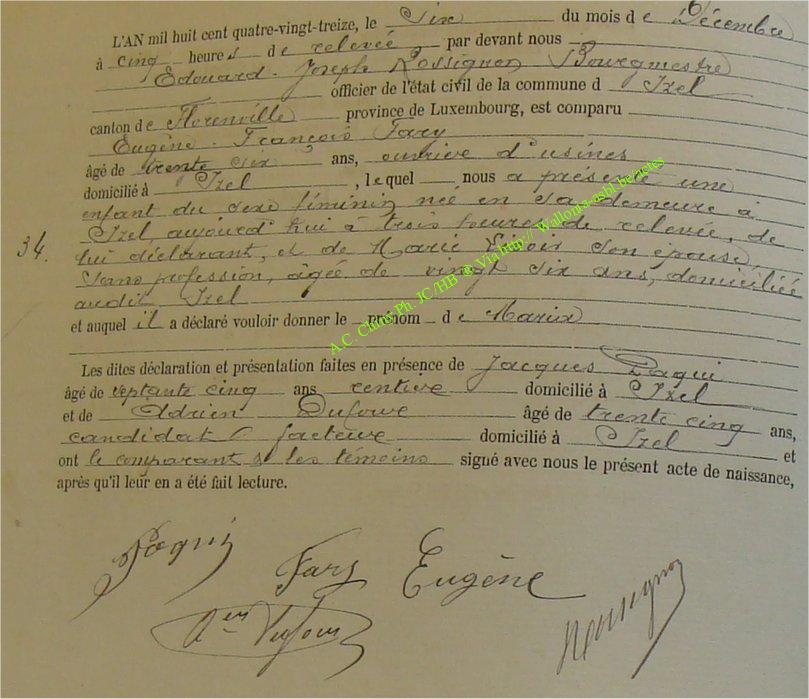 L'AN mil huit cent quatre-vingt-treize, le six du mois d e Décembre
à cinq heures de relevée par devant nous
Édouard-Joseph Rossignon Bourgmestre
officier de l'état civil de la commune d Izel
canton de Florenville province de Luxembourg, est comparu
Eugène-François Fary
âgé de trente six ans, ouvrier d'usines
domicilié à Izel, lequel nous a présenté une
enfant du sexe féminin née en sa demeure à
34. Izel, aujourd'hui à trois heures de relevée, de
lui déclarant, et de Marie son épouse,
sans profession, agée de vingt six ans, domiciliée
audit Izel
et auquel il a déclaré vouloir donner le prénom de Maria
Les dites déclaration et présentation faites en présence de Jacques Paqui
âgé de septante cinq ans rentier domicilié à Izel
et de Adrien Dufour âgé de trente cinq ans,
candidat facteur domicilié à Izel et
ont le comparant & les témoins signé avec nous le présent acte de naissance,
après qu'il leur en a été fait lecture.
Paqui Fary Eugène
Aen Dufour Rossignon
A.C. Chiny Ph. JC/HB ® Via http:// Wallonia-asbl.be/actes